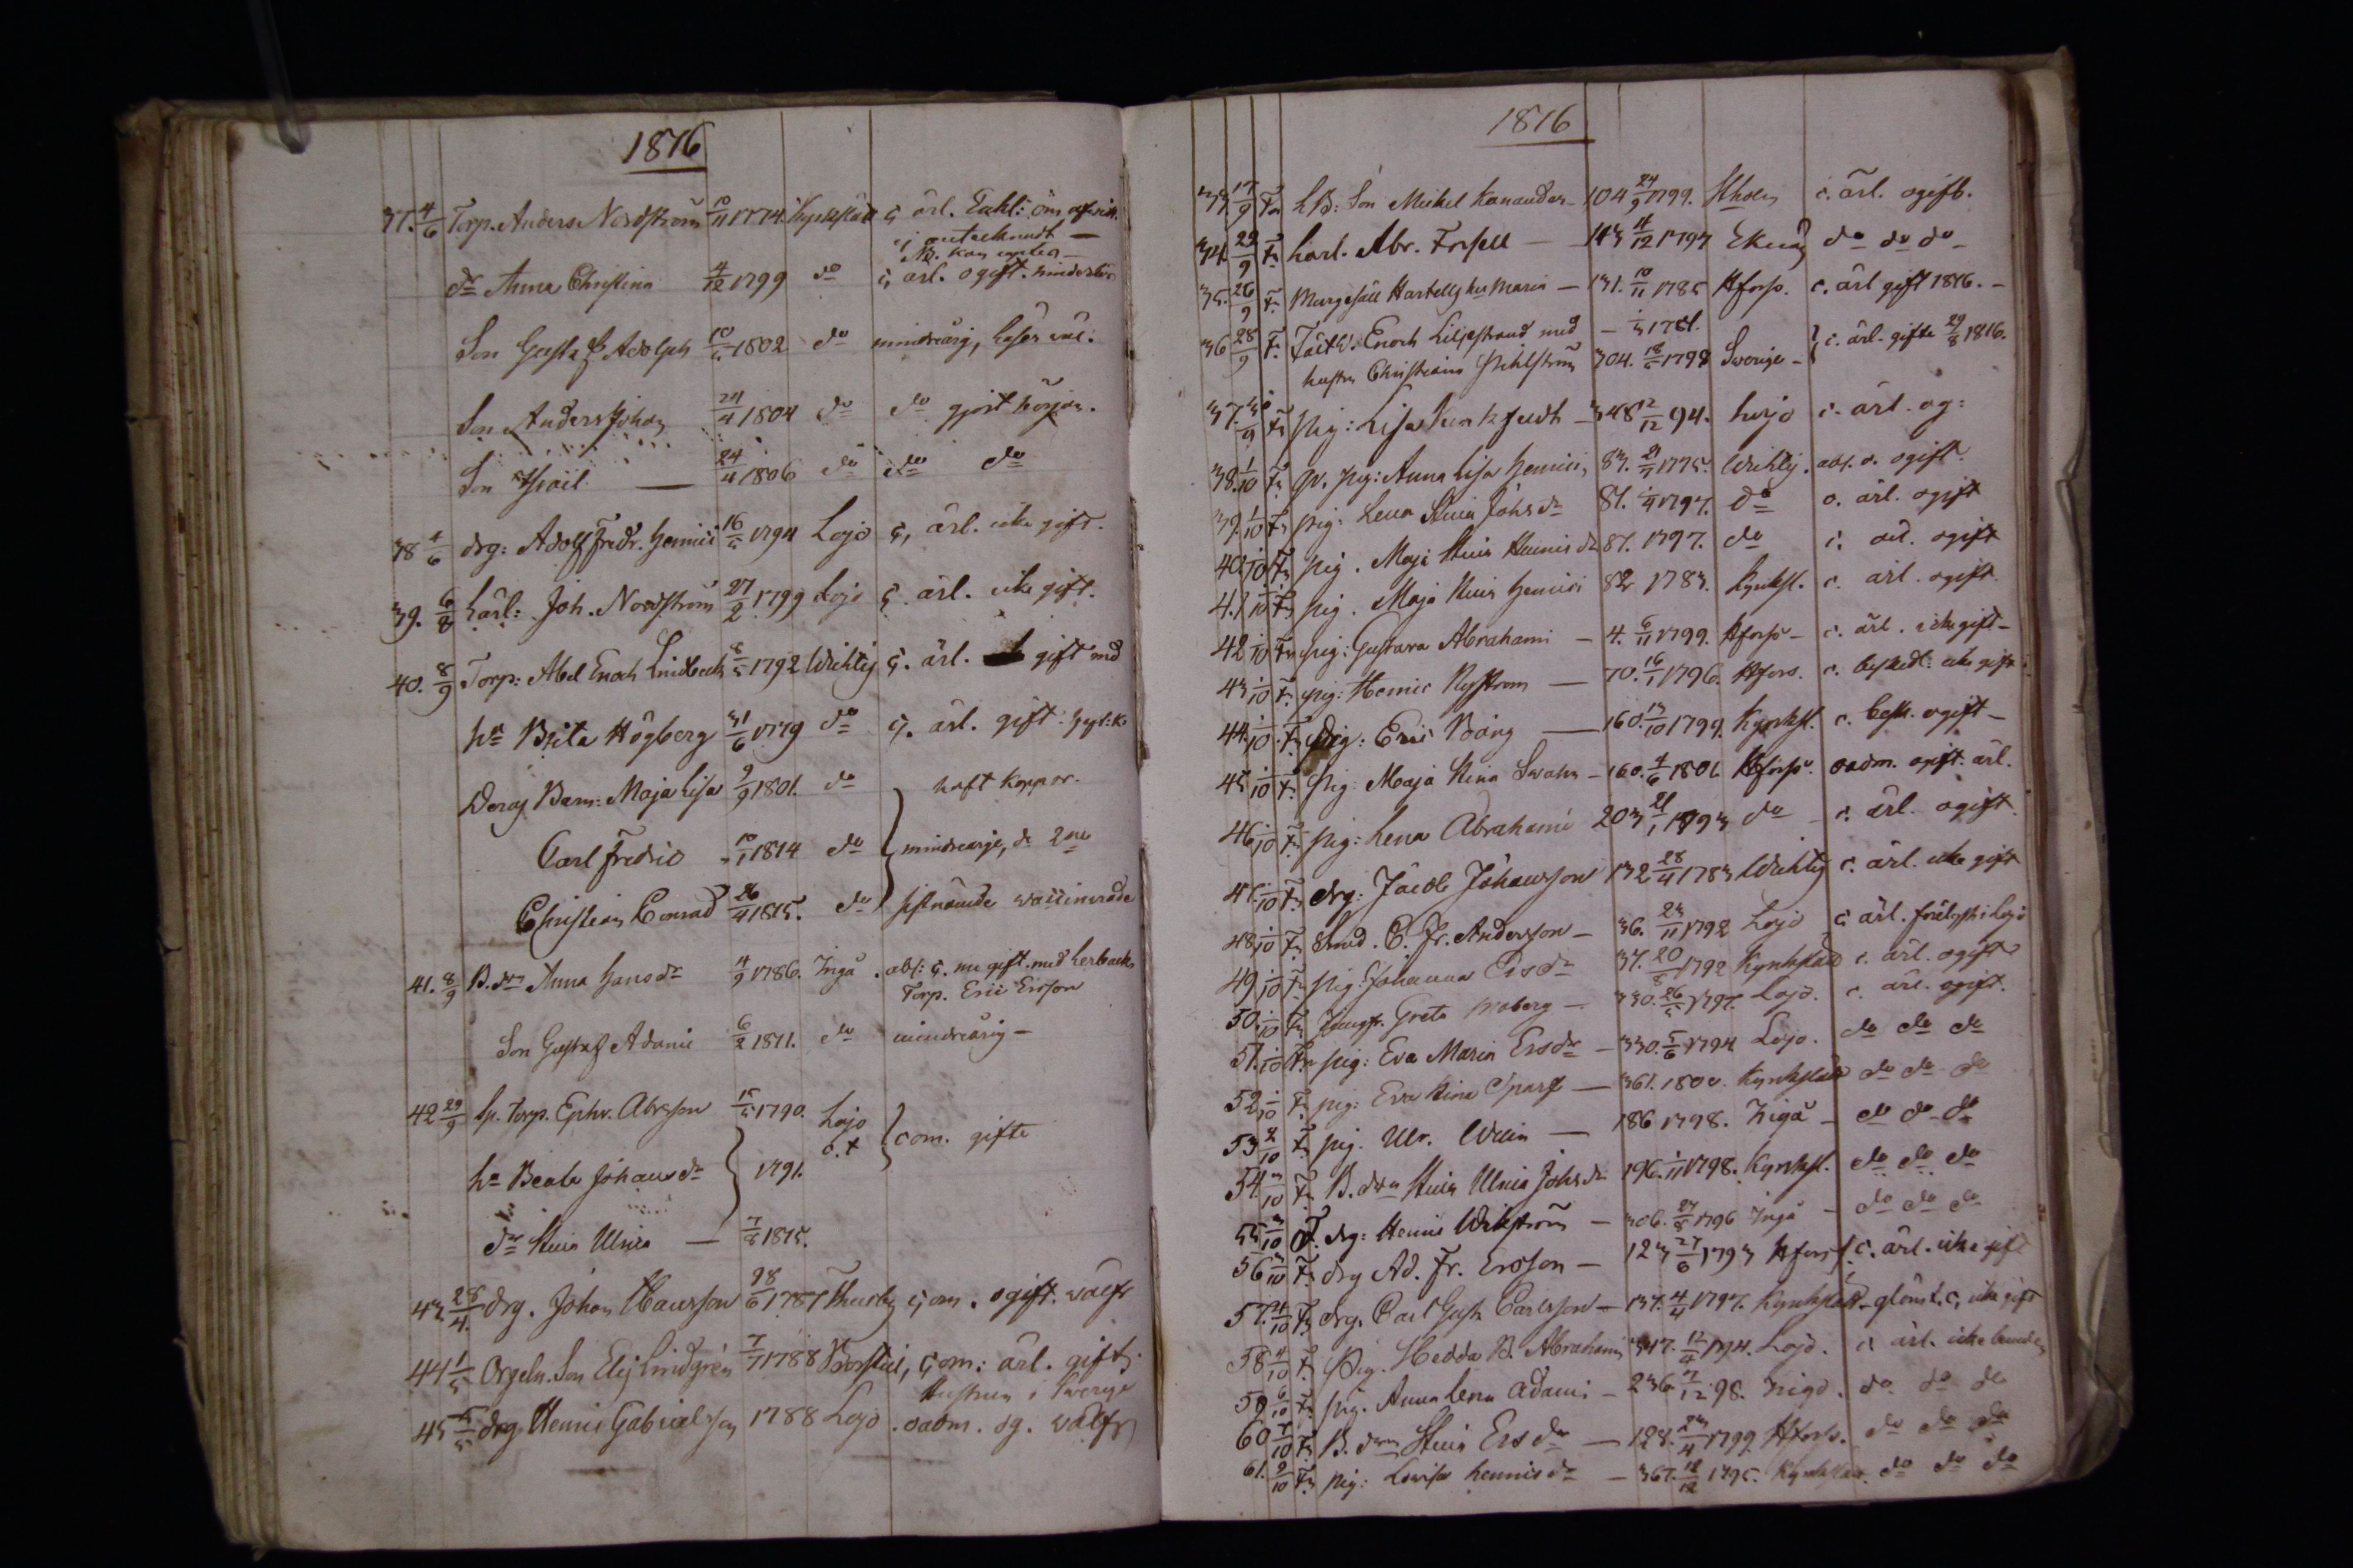 1816
37. 4/6 Torp. Anders Nordström 10/11 1774. Kyrkslätt ç ärl.
ej antecknadt —
dr Anna Christina 4/12 1799 do ç ärl. ogift.
Son Gustaf Adolph 10/5 1802 do mindreårig,
Son Anders Johan 24/4 1804 do do gjort början.
Son Isaac — 24/4 1806 do do do
38 4/6 drg: Adolf Fredr. Henrici 16/5 1794 Lojo ç, ärl. icke gift.
39. 6/8 Karl: Joh. Nordström 27/2 1799 Lojo ç. ärl. icke gift.
40. 8/9 Torp: Abel Enoch Lindbeck 8/5 1792 Wichtij ç. ärl. gift med
hu Brita Högberg 31/6 1779 do ç. ärl. gift:
Deras Barn: Maja Lisa 9/9 1801. do haft koppor.
Carl Fredric 10/1 1814 do mindreårige, de 2ne
Christian Conrad 26/4 1815. do sistnämde waccinerade
41. 8/9 B.drn Anna Hansdr 4/9 1786. Ingå. abs: ç. nu gift med
Torp. Eric Ersson
Son Gustaf Adamir 6/2 1811. do mindreårig —
42 29/9 Sp. Torp. Ephr. Abrsson 15/5 1790. Lojo com. gifte
hu Beata Johansdr 1791.
dr Stina Ulrica — 7/8 1815.
43 28/4. drg. Johan Clausson 28/6 1787 Thusby çom. ogift. wälfr
44 1/5 Orgeln. Son Elij Lindgrén 7/7 1788 çom: ärl. gift,
Hustrun i Swerge
45 5/5 drg Henric Gabrielsson 1788 Lojo. oadm. og. wälfr
1816
33. 17/9 Fn LB: Son Michel Kanander — 104 24/9 1799. Stholm c. ärl. ogift.
34. 22/9 Fn Karl. Abr. Frisell — 143 11/12 1797 Ekenäs do do do —
35. 26/9 Fn Murgesäll Hartells hu Maria — 131. 10/11 1785 Hfors. c. ärl gift 1816. —
36 28/9 Fn Enoch Liljestrand med
hustru Christiana 304. 18/5 1798 Swerige — c. ärl. gifte 29/8 1816.
37. 30/9 Fn pig: Lisa — 348 2/12 94. Lojo c. ärl. og:
38. 1/10 Fn qv. pig: Anna Lisa Henrici, 83. 1775. Wichtij. abs. o. ogift.
39. 1/10 Fn pig: Lena Stina Johsdr 81. 1797. do o. ärl. ogift
40. 1/10 Fn pig. Maja Stina Henricsdr 81. 1797. do c. ärl. ogift
41 1/10 Fn pig. Maja Stina Henrici 82 1783. Kyrksl. c. ärl. ogift.
42 1/10 Fn pig: Gustava Abrahami — 4. 6/11 1799. Hfors — c. ärl. icke gift —
43 1/10 Fn pig: Henric Nyström — 70. 16/1 1796. Hfors. c. beskedl: icke gift
44. 1/10. Fn drg: Eric Bång — 160. 13/10 1799. Kyrksl. c. besk. ogift —
45 1/10 Fn pig Maja Stina Swahn — 160. 4/6 1801. Hfors. oadm. ogift. ärl.
46 1/10 Fn pig: Lena Abrahami 203 21/1 1793 do — c. ärl. ogift.
47. 1/10 Fn drg: Jacob Johansson 132 28/4 1783 Wichtij c. ärl. icke gift
48. 1/10 Fn Smed. C. Fr. Andersson — 36. 23/11 1792 Lojo c ärl. i Lojo
49 1/10 Fn pig. Johanna Ersdr 37. 20/8 1792 Kyrkslätt c. ärl. ogift
50. 1/10 Fn Jungfr. Greta Moberg — 330. 26/5 1797. Lojo. c. ärl. ogift.
51. 1/10 Fn pig: Eva Maria Ersdr — 330. 5/6 1794 Lojo. do do do
52. 1/10 Fn pig: Eva Stina Sparf — 361. 1800. Kyrkslätt do do do
53 2/10 Fn pig. Ulr. — 186 1798. Ingå — do do do
54 3/10 Fn B. drn Stina Ulrica Johsdr 196. 1/11 1798. Kyrksl. do do do
55 3/10 F. drg: Henric Wikström — 306. 27/8 1796 Ingå — do do do
56 3/10 Fn drg Ad. Fr. Ersson — 123 27/6 1793 Hfors c. ärl. icke gift
57. 4/10 Fn drg. Carl Gust. Carlsson — 137. 4/4 1797. Kyrkslätt. c, icke gift
58 4/10 F. Pig. Hedda B. Abrahami 317. 12/4 1794. Lojo. c ärl. icke bunden
59 6/10 Fn pig. Anna Lena Adami — 236 7/12 98. Ingå. do do do
60 7/10 Fn B. drn Stina Ersdr — 128. 23/4 1799. Hfors. do do do
61. 9/10 Fn pig: Lovisa Henricsdr — 367. 18/12 1795. Kyrkslätt. do do do